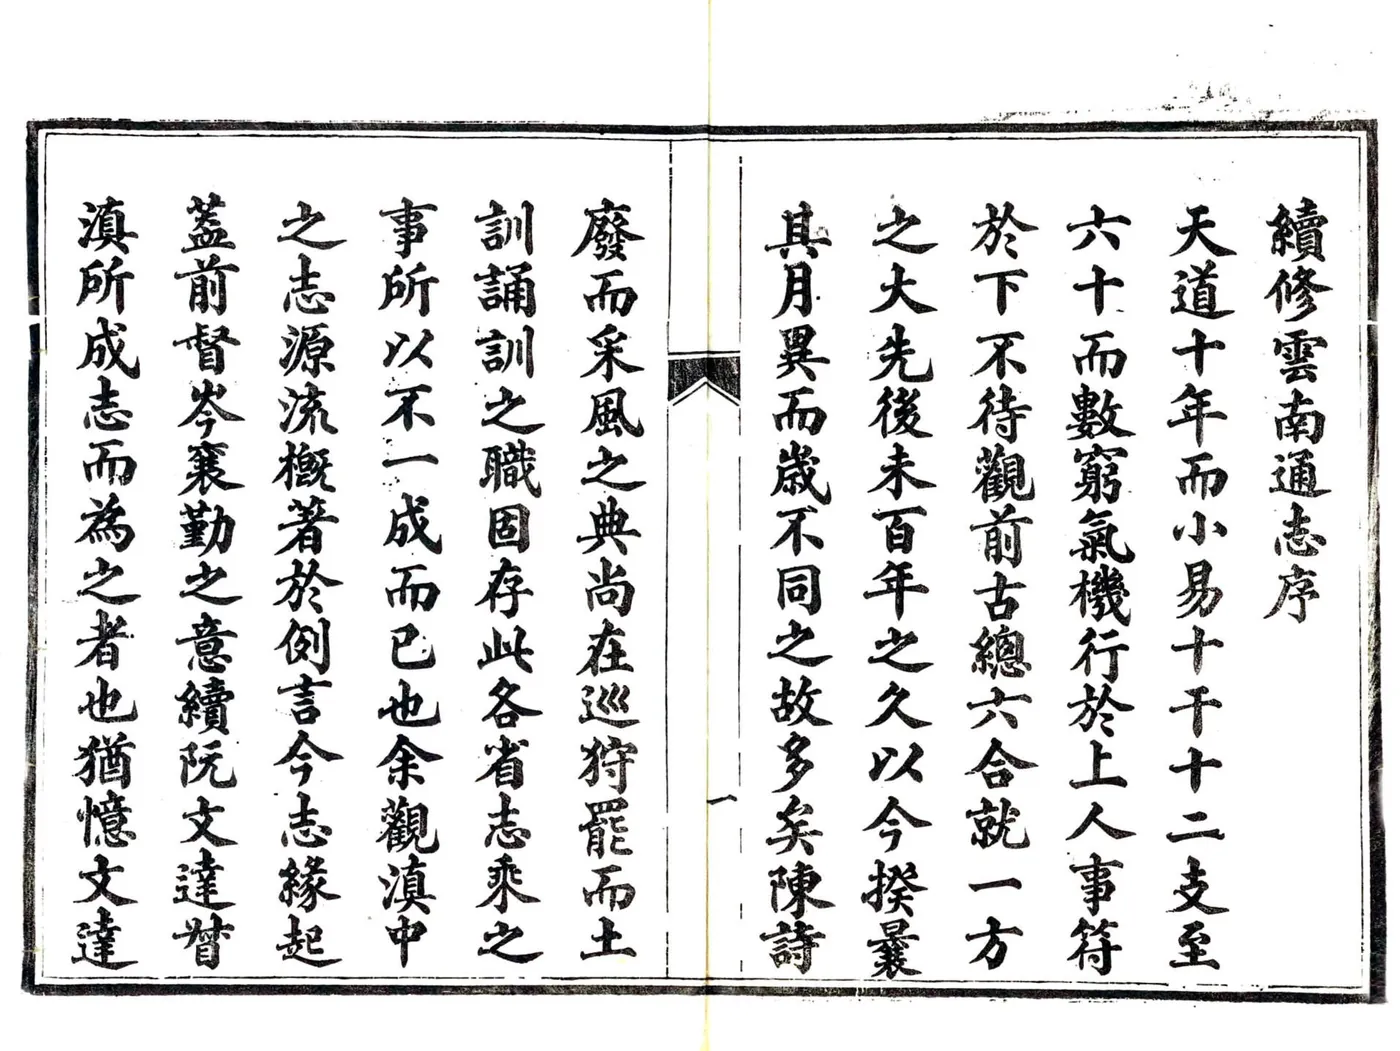 續修雲南通志序
天道十年而小易十干十二支至
六十而數窮氣機行於上人事符
於下不待觀前古總六合就一方
之大先後未百年之久以今揆曩
其月異而歲不同之故多矣陳詩
一
廢而采風之典尚在巡狩罷而土
訓誦訓之職固存此各省志乘之
事所以不一成而已也余觀滇中
之志源流概著於例言今志緣起
蓋前督岑襄勤之意續阮文達督
滇所成志而為之者也猶憶文達